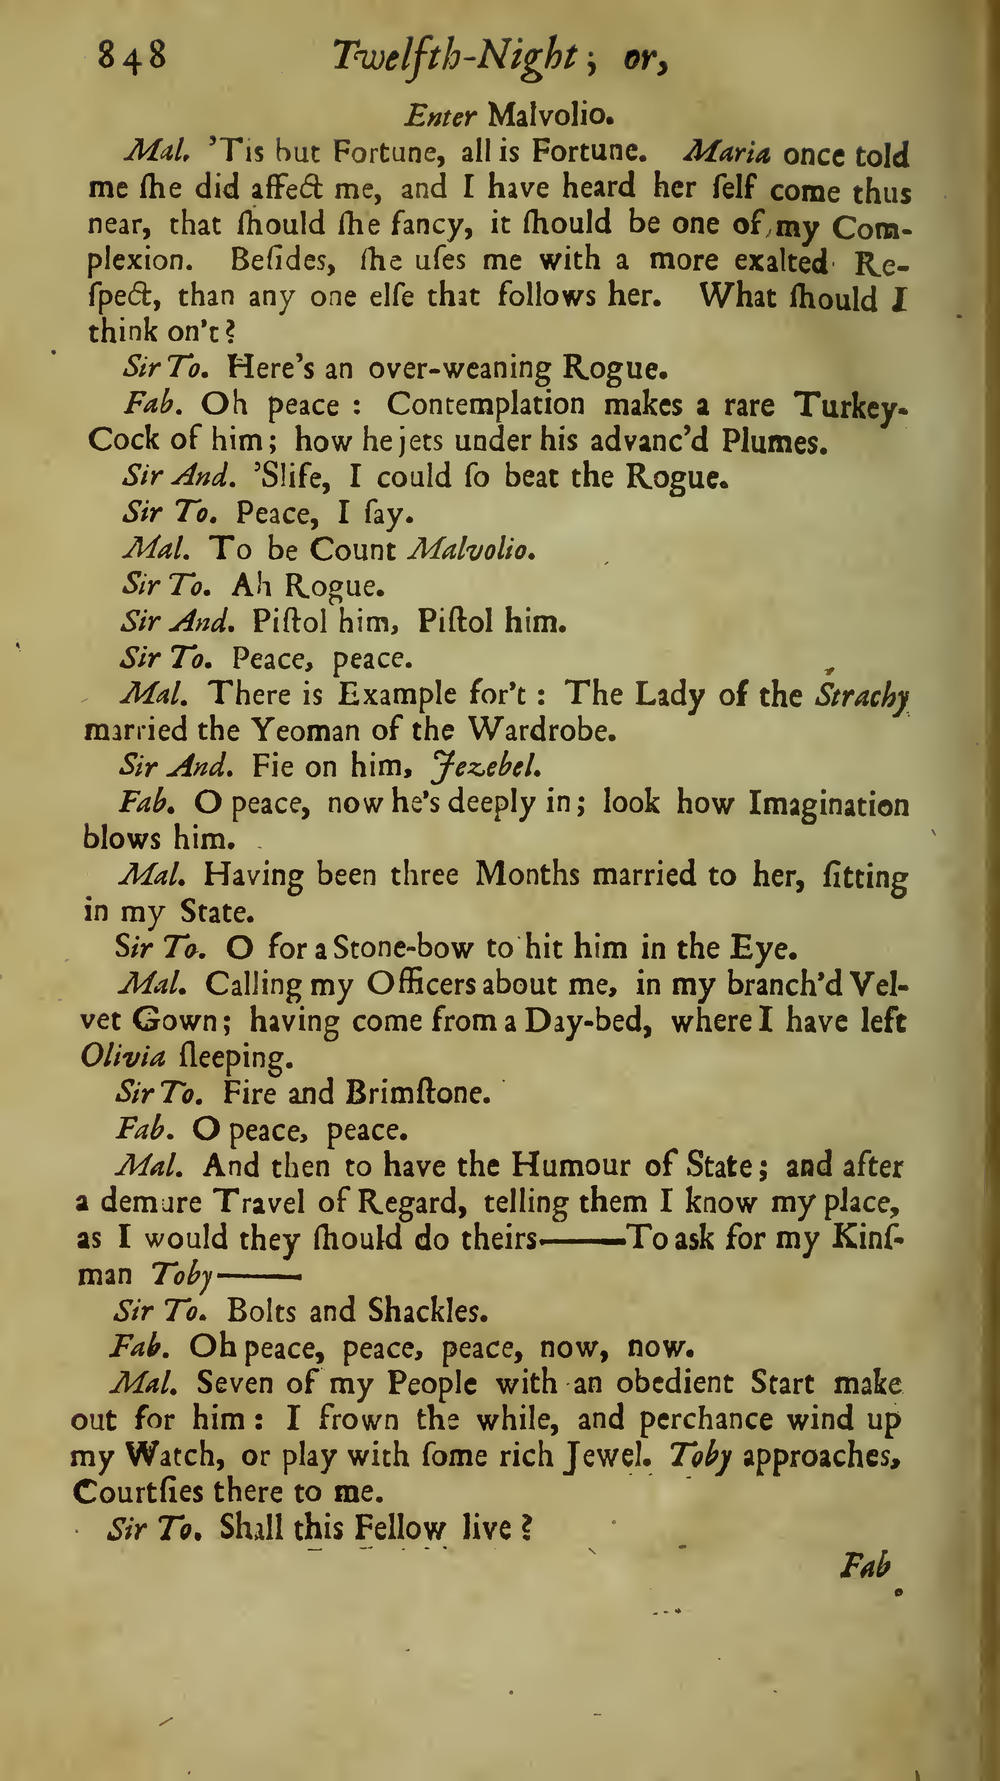 848 Twelfth-Night; or,
Enter Malvolio.
Mal. 'Tis but Fortune, all is Fortune. Maria once told
me ſhe did affect me, and I have heard her ſelf come thus
near, that ſhould ſhe fancy, it ſhould be one of my Com-
plexion. Beſides, ſhe uſes me with a more exalted Re-
ſpect, than any one elſe that follows her. What ſhould I
think on't?
Sir To. Here's an over-weaning Rogue.
Fab. Oh peace : Contemplation makes a rare Turkey-
Cock of him; how he jets under his advanc'd Plumes.
Sir And. 'Slife, I could ſo beat the Rogue.
Sir To. Peace, I ſay.
Mal. To be Count Malvolio.
Sir To. Ah Rogue.
Sir And. Piſtol him, Piſtol him.
Sir To. Peace, peace.
Mal. There is Example for't : The Lady of the Strachy
married the Yeoman of the Wardrobe.
Sir And. Fie on him, Jezebel.
Fab. O peace, now he's deeply in; look how Imagination
blows him.
Mal. Having been three Months married to her, ſitting
in my State.
Sir To. O for a Stone-bow to hit him in the Eye.
Mal. Calling my Officers about me, in my branch'd Vel-
vet Gown; having come from a Day-bed, where I have left
Olivia ſleeping.
Sir To. Fire and Brimſtone.
Fab. O peace, peace.
Mal. And then to have the Humour of State; and after
a demure Travel of Regard, telling them I know my place,
as I would they ſhould do theirs——To ask for my Kinſ-
man Toby——
Sir To. Bolts and Shackles.
Fab. Oh peace, peace, peace, now, now.
Mal. Seven of my People with an obedient Start make
out for him : I frown the while, and perchance wind up
my Watch, or play with ſome rich Jewel. Toby approaches,
Courtſies there to me.
Sir To. Shall this Fellow live?
Fab.